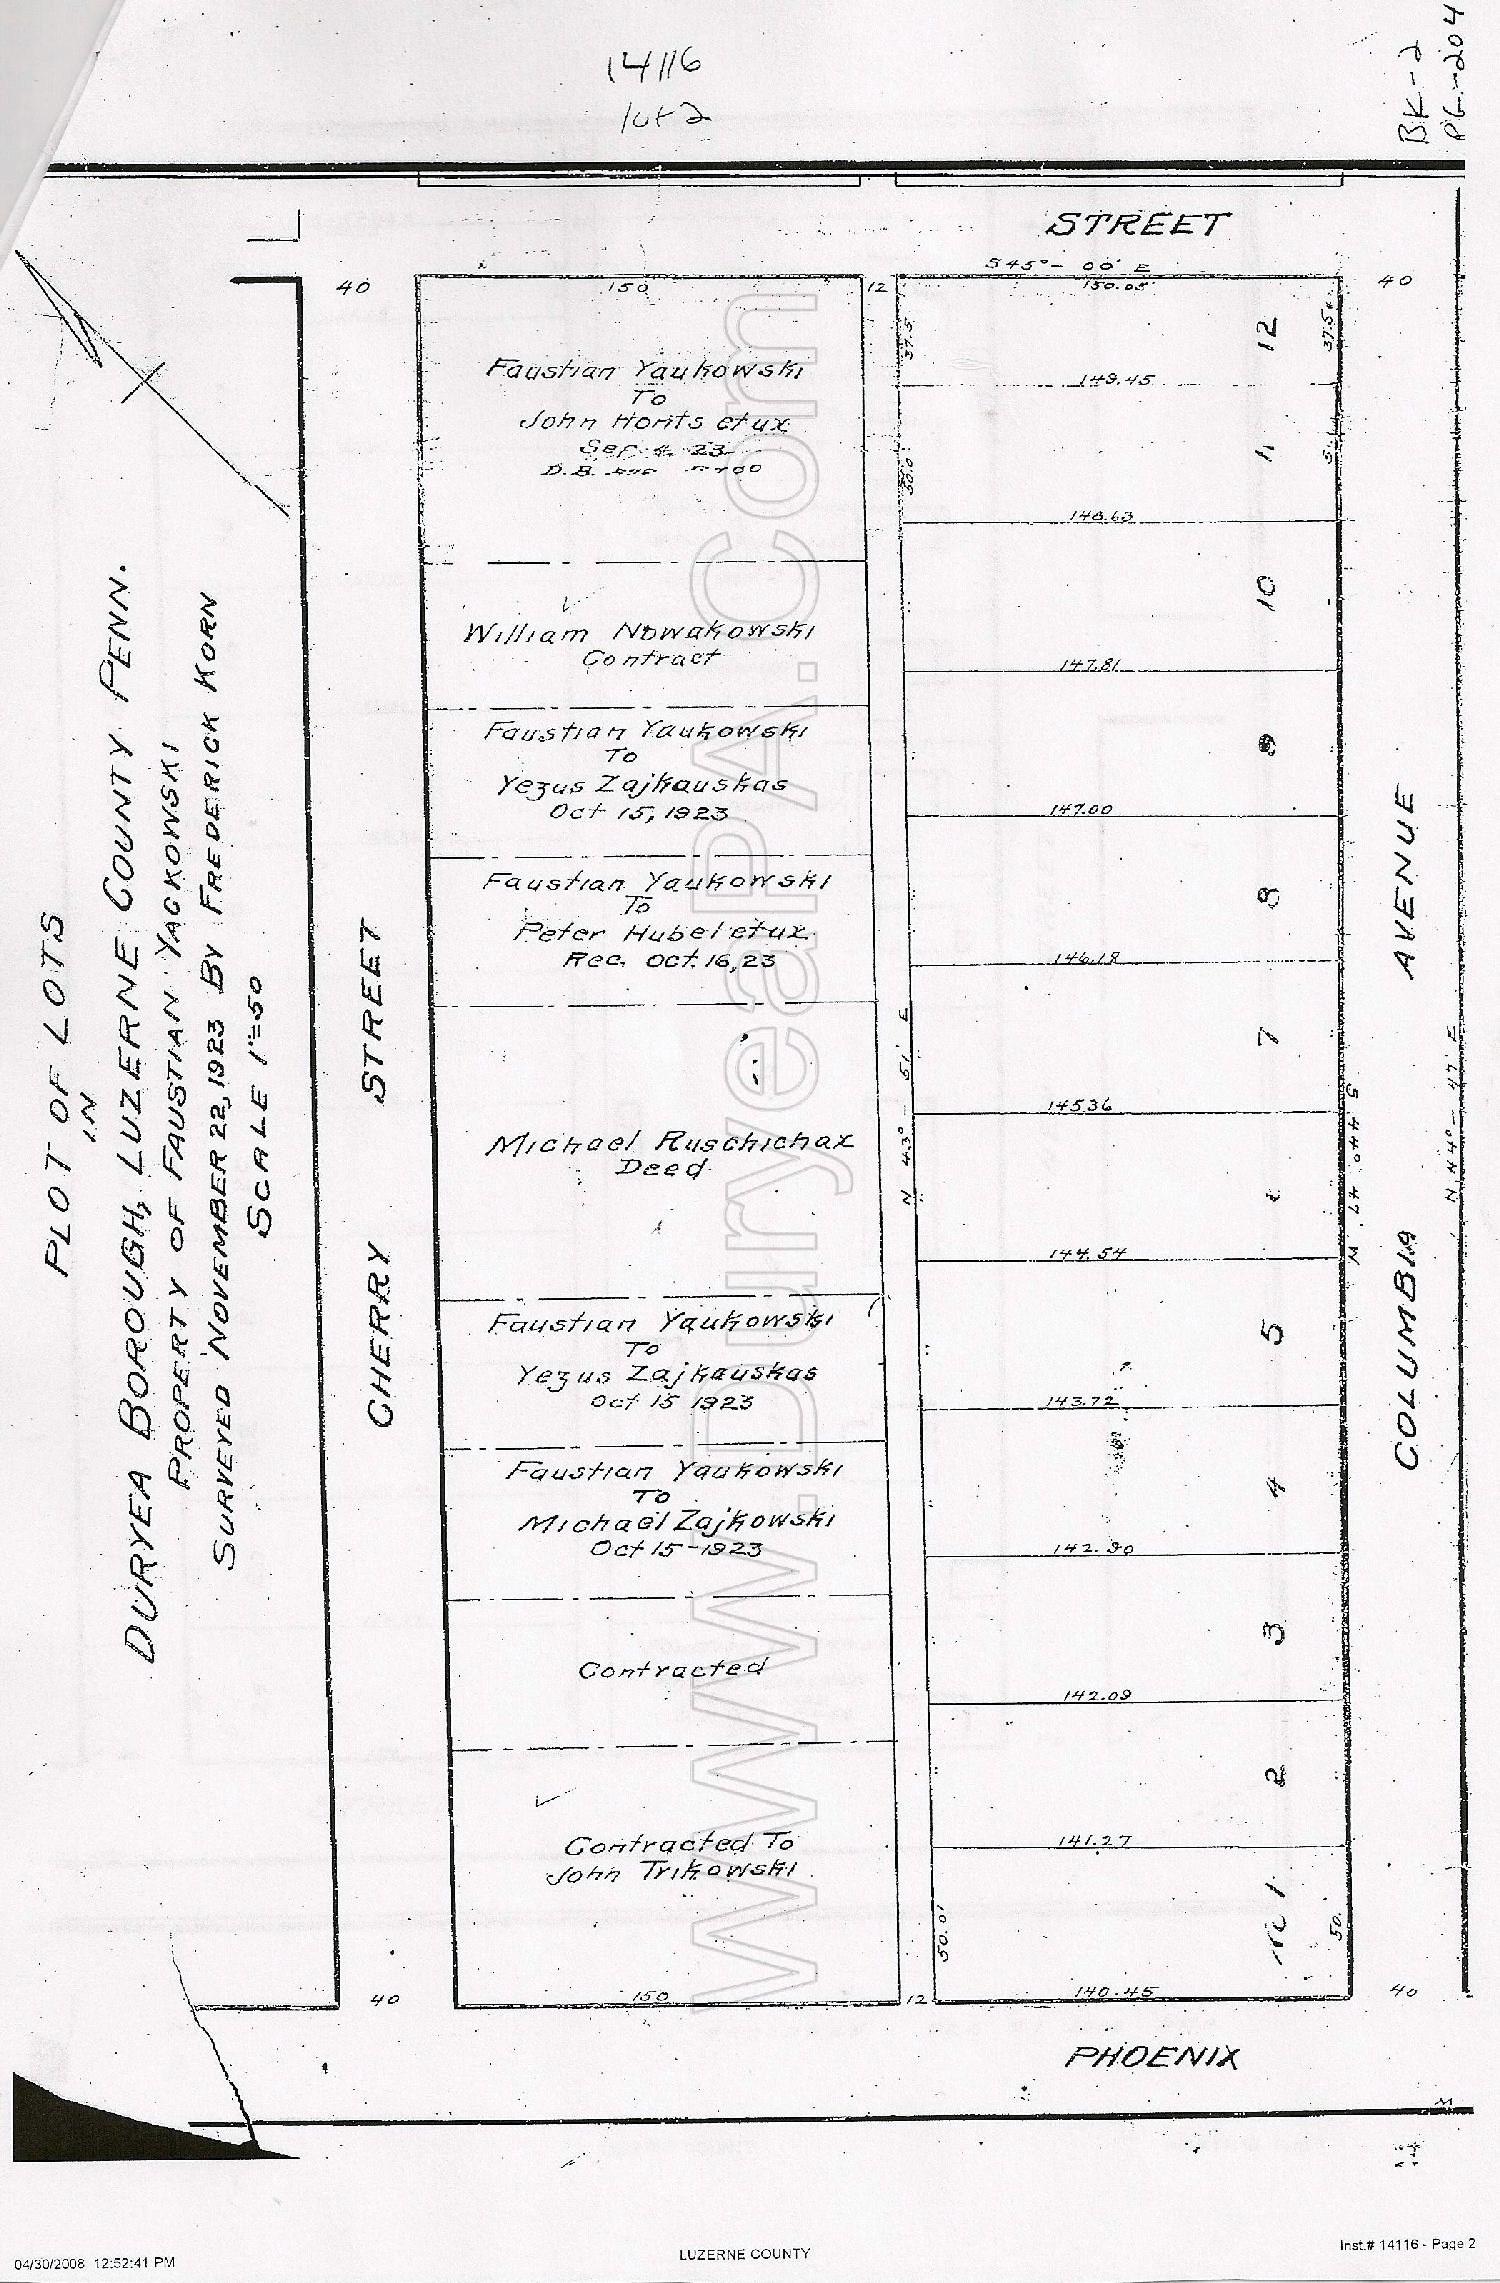 14116
lot 2
BK-2
PG-204
STREET
S45°- 00' E
40
150
12
150.05
40
37.5
37.54
12
149.45
50.0
11
148.63
10
147.81
9
147.00
8
146.18
7
145.36
144.54
5
143.72
4
142.90
3
142.09
2
141.27
1
50.01
50.
140.45
40
150
12
40
Faustian Yaukowski
To
John Honts et ux
Sep 4. 23
D.B.
William Nowakowski
Contract
Faustian Yaukowski
To
Yezus Zajkauskas
Oct 15, 1923
Faustian Yaukowski
To
Peter Hubel et ux
Rec. Oct. 16, 23
Michael Ruschichax
Deed
Faustian Yaukowski
To
Yezus Zajkauskas
Oct 15 1923
Faustian Yaukowski
To
Michael Zajkowski
Oct 15-1923
Contracted
Contracted To
John Trikowski
N 43°- 51' E
S 44° 47' W
N 44°- 47' E
COLUMBIA AVENUE
CHERRY STREET
PHOENIX
PLOT OF LOTS
IN
DURYEA BOROUGH, LUZERNE COUNTY PENN.
PROPERTY OF FAUSTIAN YACKOWSKI
SURVEYED NOVEMBER 22, 1923 BY FREDERICK KORN
SCALE 1"=50
www.DuryeaPA.com
04/30/2008 12:52:41 PM
LUZERNE COUNTY
Inst.# 14116 - Page 2